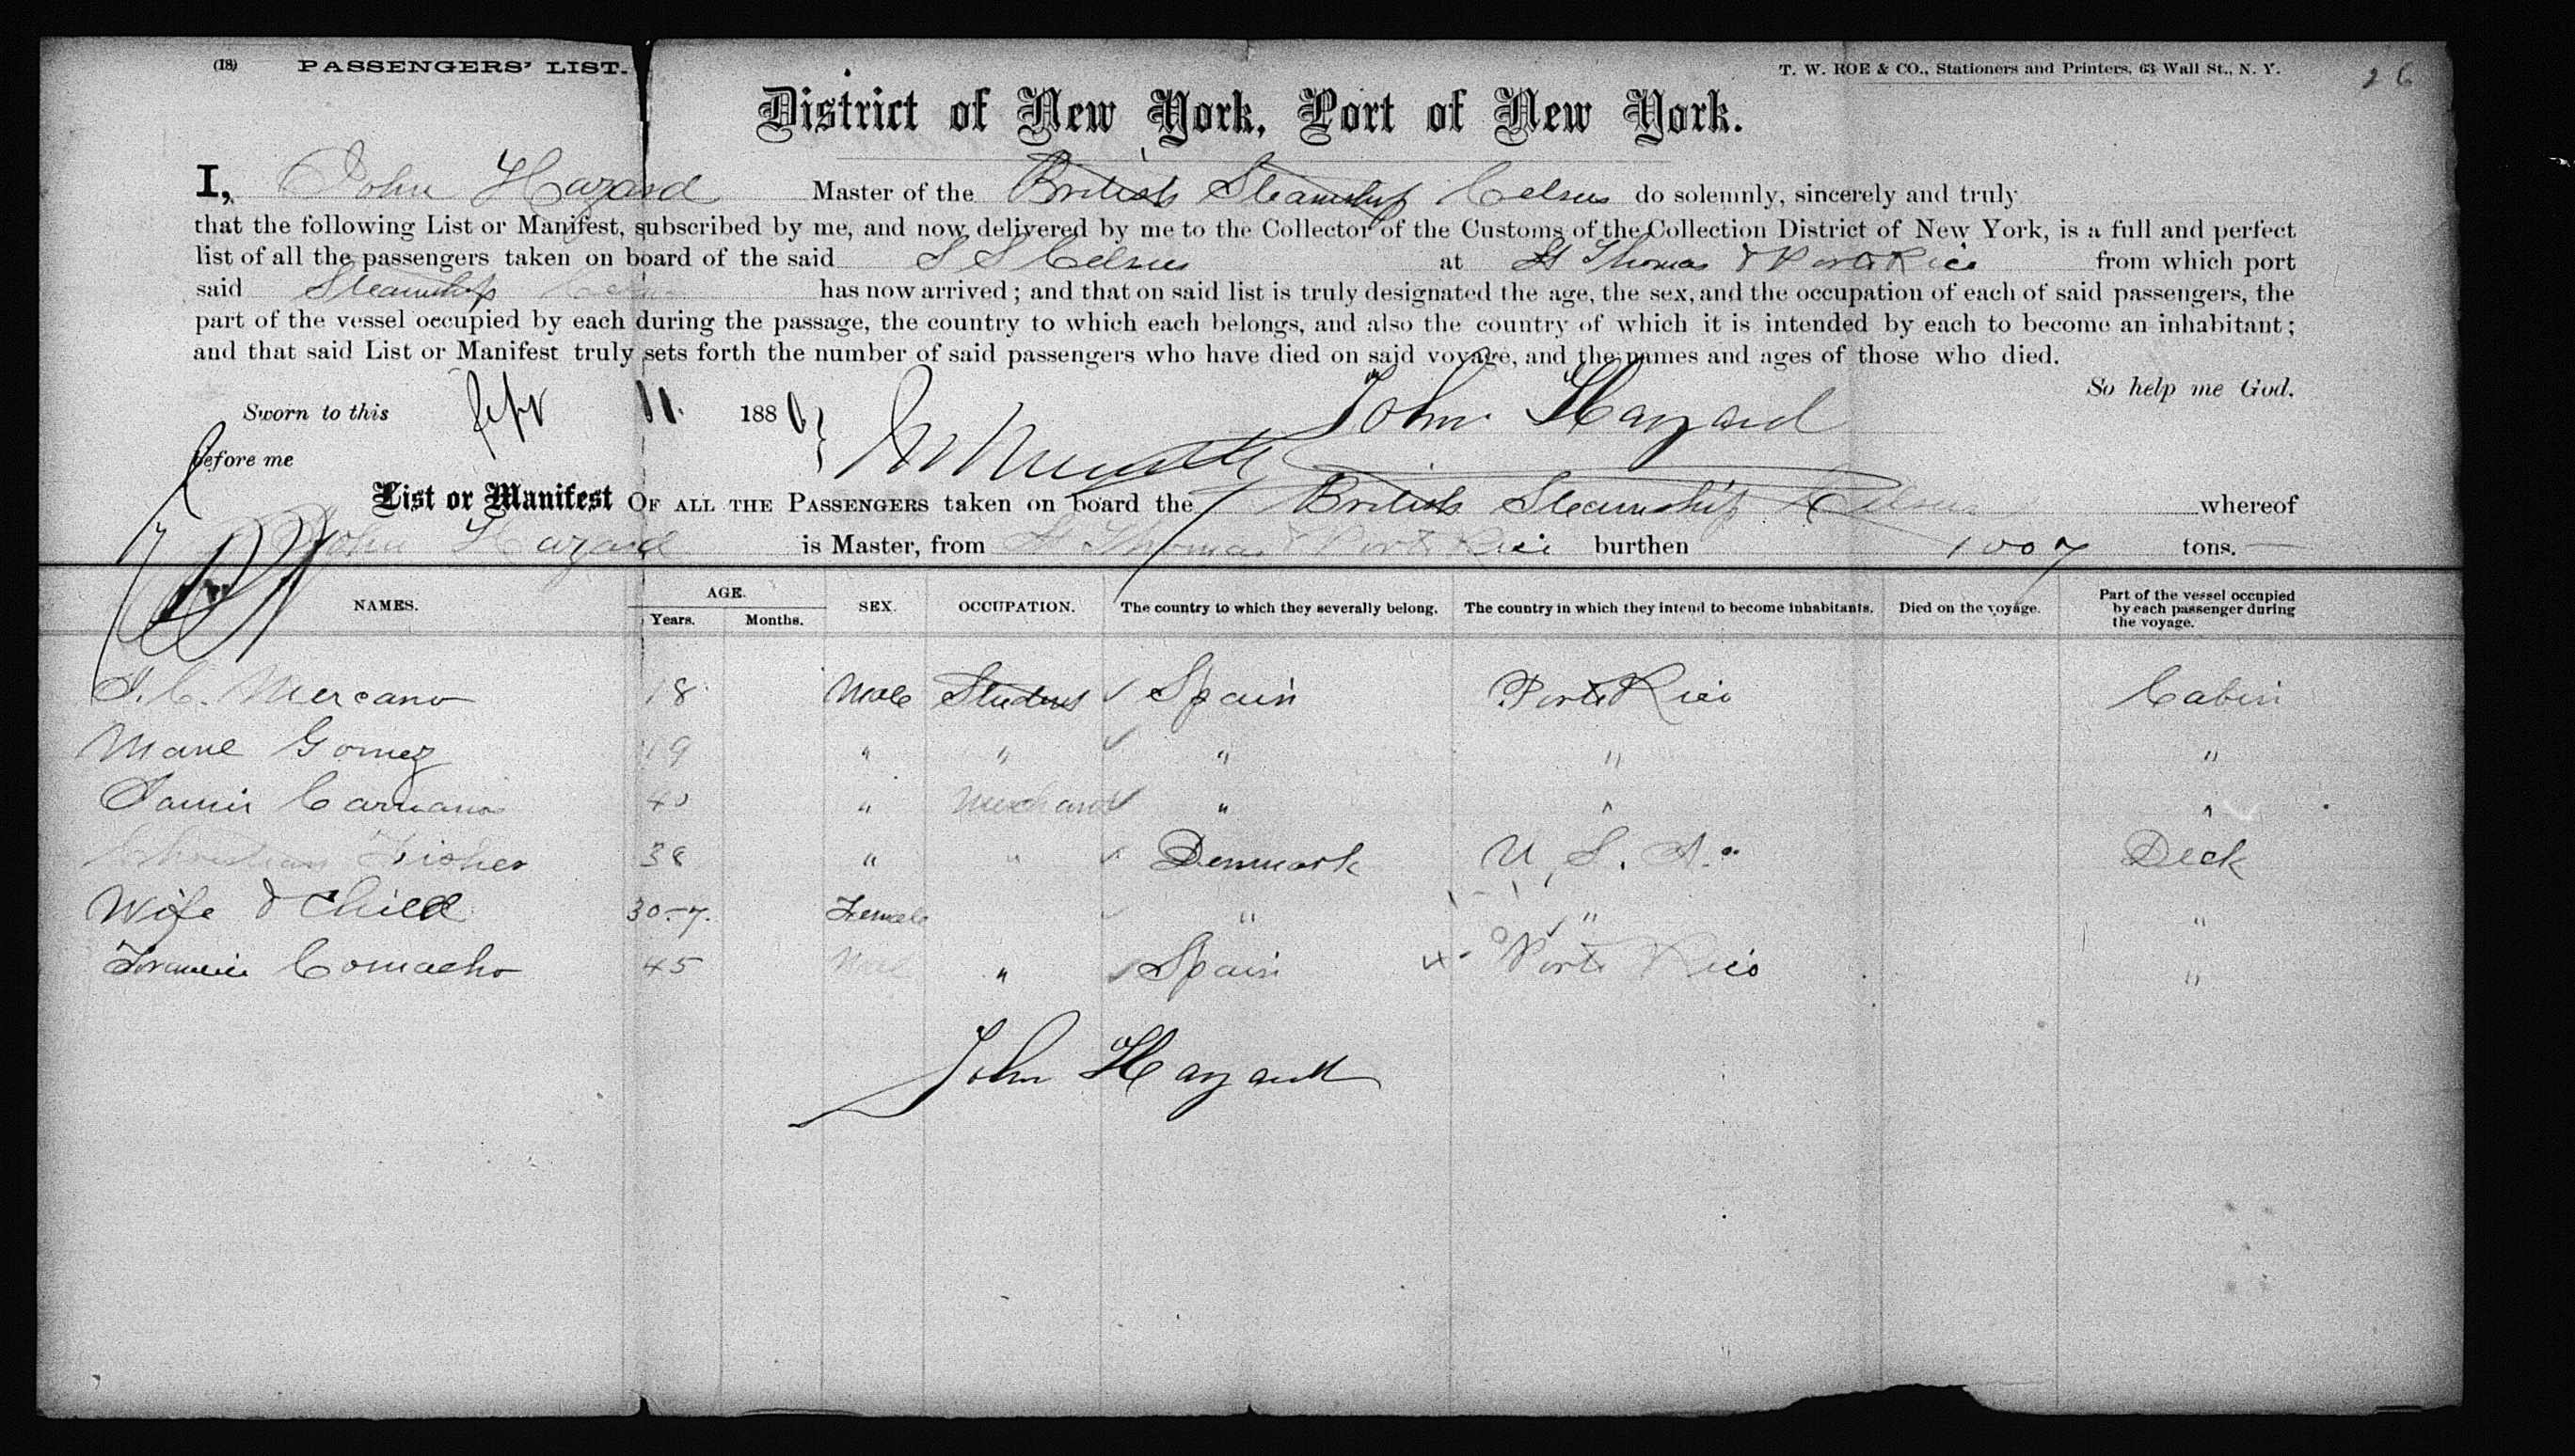 (18) PASSENGERS' LIST. T. W. ROE & CO., Stationers and Printers, 63 Wall St., N. Y. 26
District of New York, Port of New York.
I, John Hazard Master of the British Steamship Celsus do solemnly, sincerely and truly
that the following List or Manifest, subscribed by me, and now delivered by me to the Collector of the Customs of the Collection District of New York, is a full and perfect
list of all the passengers taken on board of the said S S Celsus at St Thomas & Porto Rico from which port
said Steamship Celsus has now arrived; and that on said list is truly designated the age, the sex, and the occupation of each of said passengers, the
part of the vessel occupied by each during the passage, the country to which each belongs, and also the country of which it is intended by each to become an inhabitant;
and that said List or Manifest truly sets forth the number of said passengers who have died on said voyage, and the names and ages of those who died.
So help me God.
Sworn to this Sept 11. 1886 John Hazard
before me
List or Manifest OF ALL THE PASSENGERS taken on board the British Steamship Celsus whereof
John Hazard is Master, from St Thomas & Porto Rico burthen 1007 tons.
NAMES. AGE. Years. Months. SEX. OCCUPATION. The country to which they severally belong. The country in which they intend to become inhabitants. Died on the voyage. Part of the vessel occupied by each passenger during the voyage.
Mercano 18 Male Student Spain Porto Rico Cabin
Gomez 19 " " " " "
40 " Merchant "
Christian Fisher 38 " " Denmark U. S. A. Deck
Wife & Child 30-7. Female " " "
Comacho 45 Male " Spain Porto Rico "
John Hazard